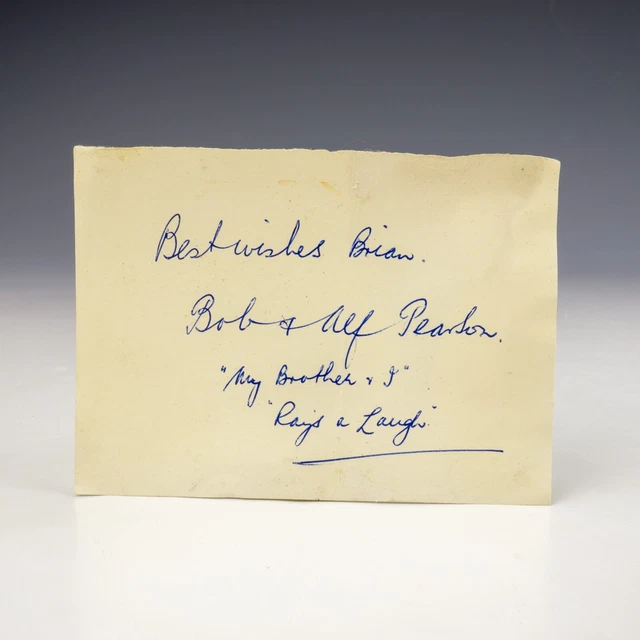 Best wishes Brian.
Bob & Alf Pearson.
"My Brother & I"
"Rays a Laugh"